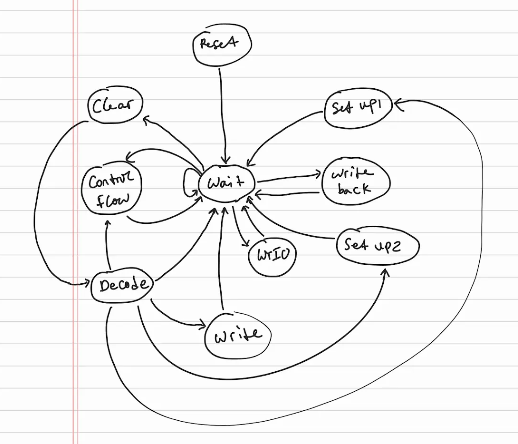 Reset
Clear
Set up1
Control
flow
Wait
Write
back
Set up2
WrIO
Decode
Write